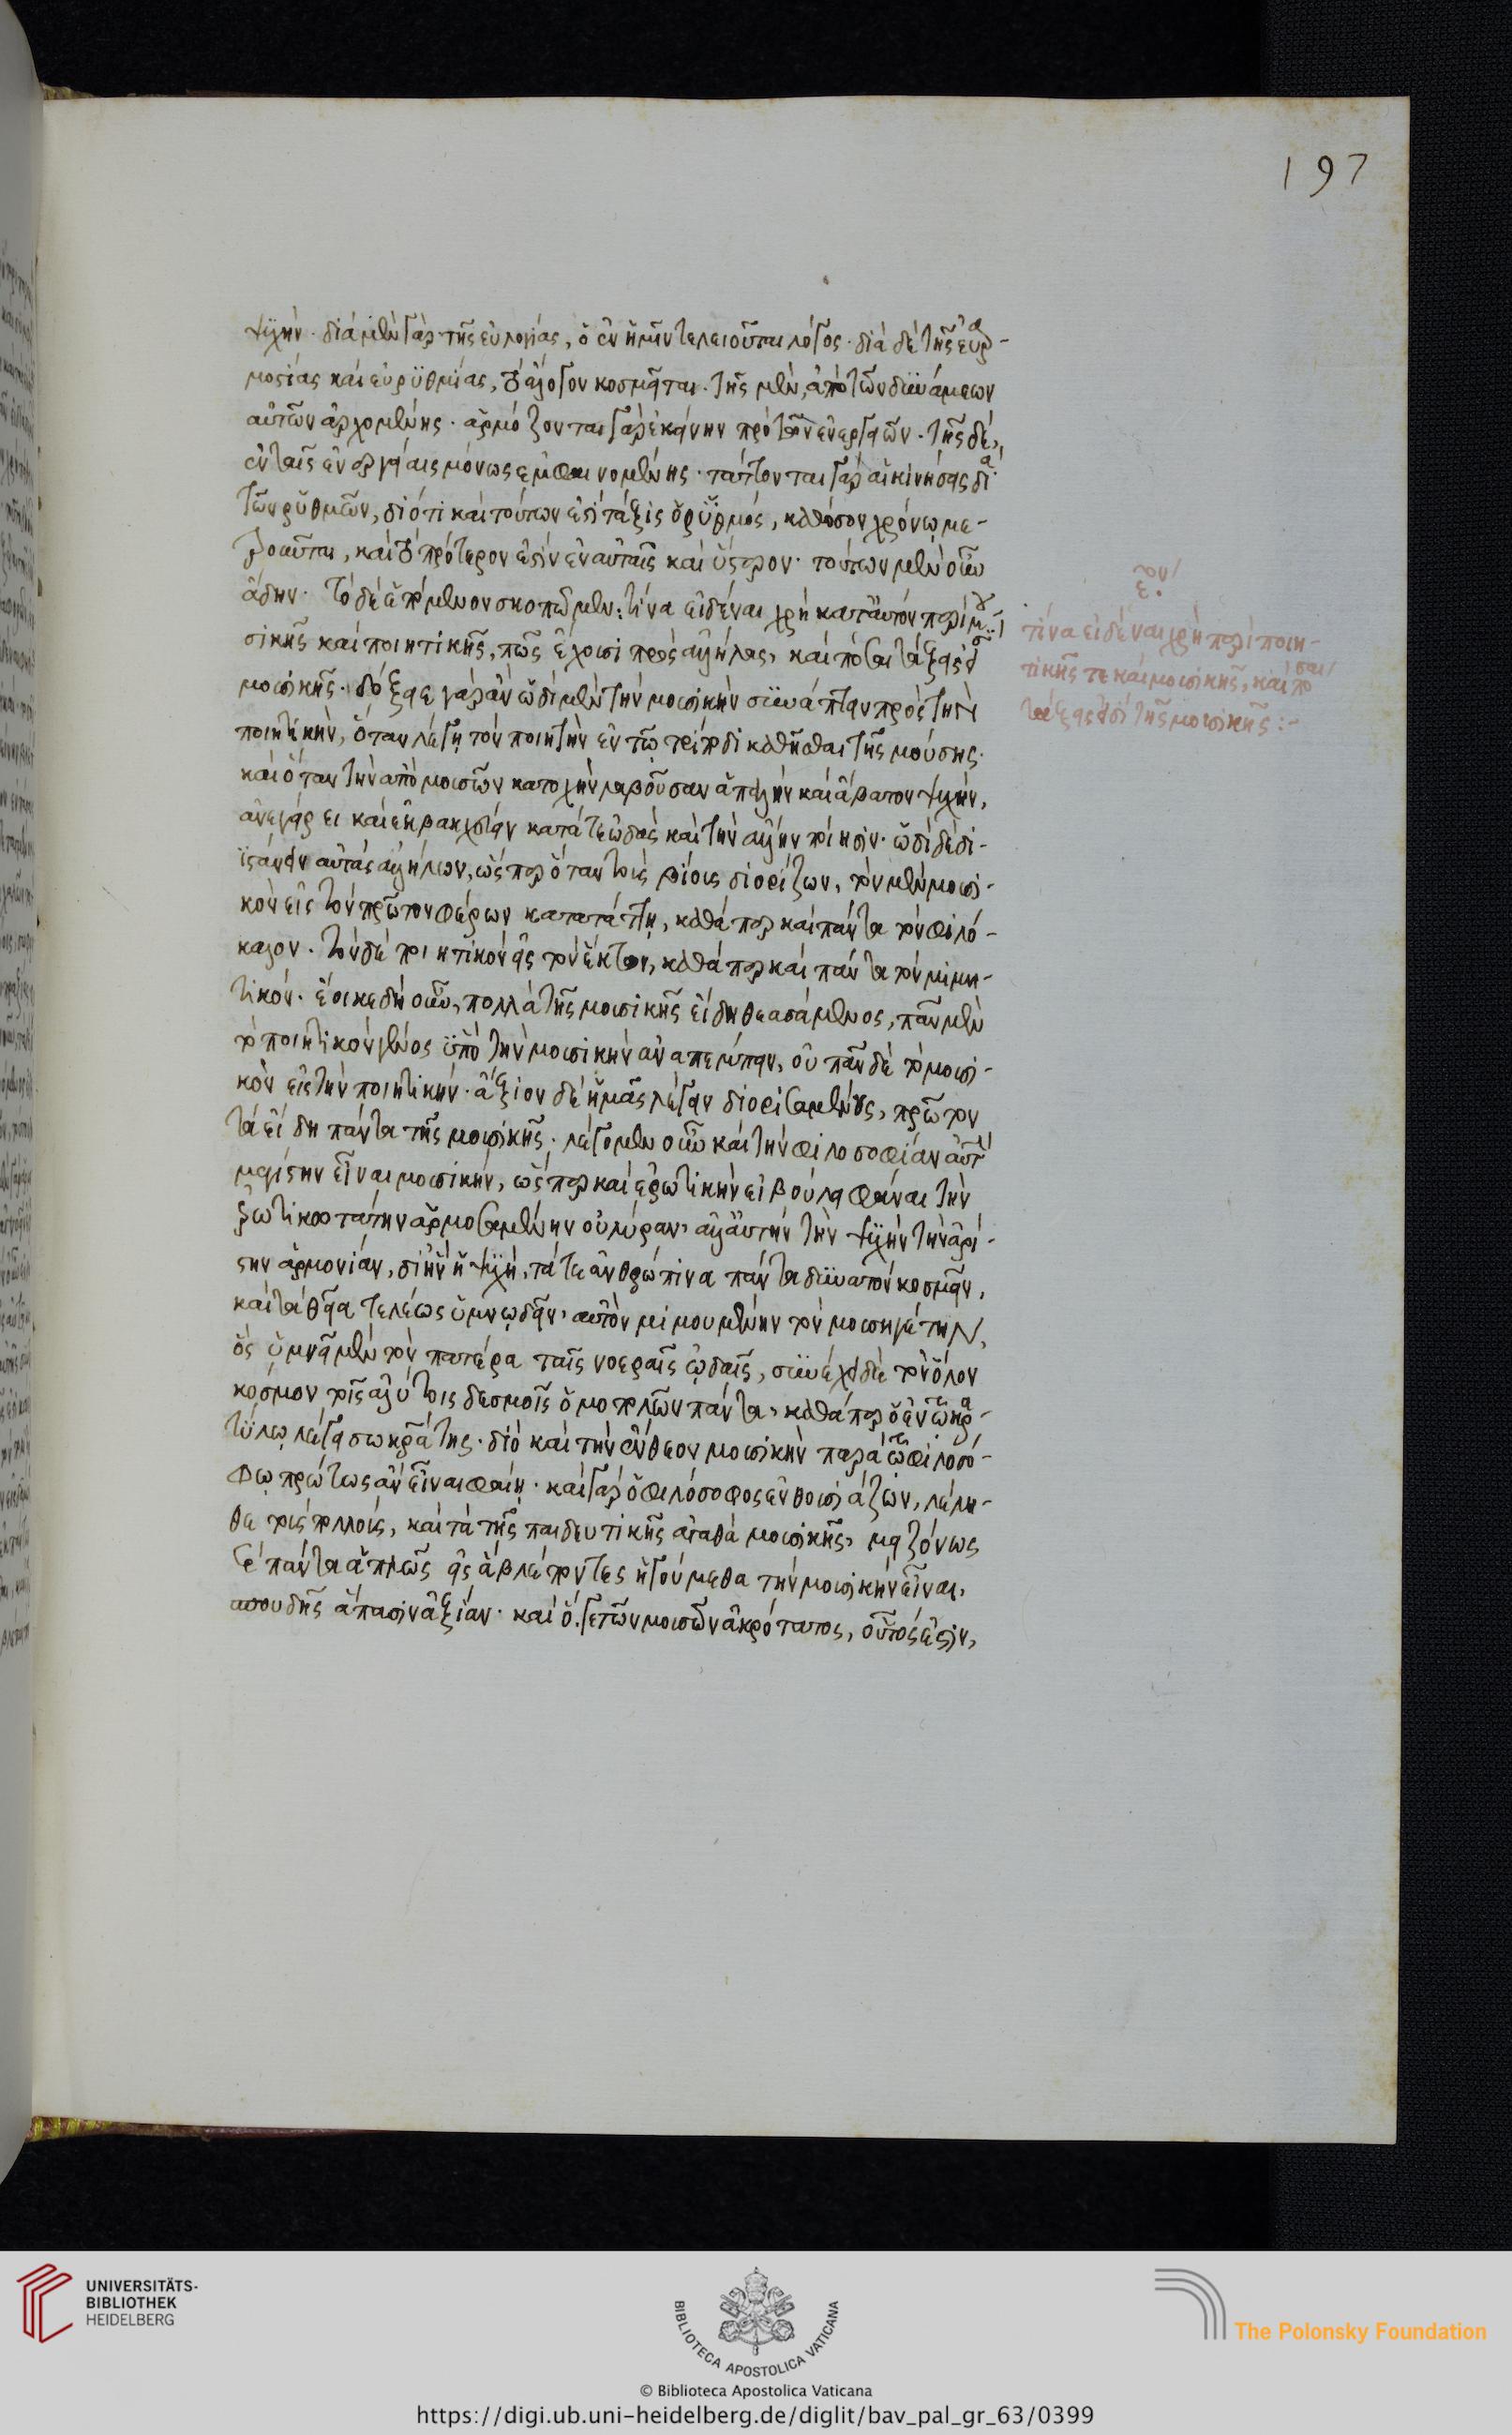 197
ψυχήν. διὰ μὲν γὰρ τῆς εὐλογίας, ὁ ἐν ἡμῖν τελειοῦται λόγος. διὰ δὲ τῆς εὐαρ-
μοστίας καὶ εὐρυθμίας, τὸ ἄλογον κοσμεῖται. τῆς μὲν, ἀπὸ τῶν δυνάμεων
αὐτῶν ἀρχομένης. ἁρμόζονται γὰρ ἐκεῖναι πρὸ τῶν ἐνεργειῶν. τῆς δὲ,
ἐν ταῖς ἐνεργείαις μόνως ἐμφαινομένης. τάττονται γὰρ αἱ κινήσεις διὰ
τῶν ῥυθμῶν, διότι καὶ τούτων ἐστὶ τάξις ὁ ῥυθμός, καθόσον χρόνῳ με-
τροῦνται, καὶ τὸ πρότερον ἐστὶν ἐν αὐταῖς καὶ ὕστερον. τούτων μὲν οὖν
ἅδην. τὸ δὲ ἑπόμενον σκοπῶμεν: τίνα εἰδέναι χρὴ κατ' αὐτὸν περὶ μου-
σικῆς καὶ ποιητικῆς, πῶς ἔχουσι πρὸς ἀλλήλας, καὶ πόσαι τάξεις
μουσικῆς. δόξειε γὰρ ἂν ὡδὶ μὲν τὴν μουσικὴν συνάπτειν πρὸς τὴν
ποιητικὴν, ὅταν λέγῃ τὸν ποιητὴν ἐν τῷ τρίποδι καθῆσθαι τῆς μούσης.
καὶ ὅταν τὴν ἀπὸ μουσῶν κατοχὴν λαβοῦσαν ἁπαλὴν καὶ ἄβατον ψυχὴν,
ἀνεγείρει καὶ ἐκβακχεύειν κατά τε ᾠδὰς καὶ τὴν ἄλλην ποίησιν. ὡδὶ δὲ δι-
ϊστάνειν αὐτὰς ἀλλήλων, ὥσπερ ὅταν τοὺς βίους διορίζων, τὸν μὲν μουσι-
κὸν εἰς τὸν πρῶτον φέρων κατατάττῃ, καθάπερ καὶ πάντα τὸν φιλό-
καλον. τὸν δὲ ποιητικὸν εἰς τὸν ἕκτον, καθάπερ καὶ πάντα τὸν μιμη-
τικόν. ἔοικε δὴ οὖν, πολλὰ τῆς μουσικῆς εἴδη θεασάμενος, πᾶν μὲν
τὸ ποιητικὸν γένος ὑπὸ τὴν μουσικὴν ἀναπέμπειν, οὐ πᾶν δὲ τὸ μουσι-
κὸν εἰς τὴν ποιητικήν. ἄξιον δὲ ἡμᾶς λέγειν διορισαμένους, πρῶτον
τὰ εἴδη πάντα τῆς μουσικῆς. λέγομεν οὖν καὶ τὴν φιλοσοφίαν αὐτὴν
μεγίστην εἶναι μουσικήν, ὥσπερ καὶ ἐρωτικὴν εἰ βούλει φάναι τὴν
ἐρωτικωτάτην ἁρμοσαμένην οὐ λύραν, ἀλλ' αὐτὴν τὴν ψυχὴν τὴν ἀρί-
στην ἁρμονίαν, δι' ἣν ἡ ψυχὴ, τά τε ἀνθρώπινα πάντα δυνατὸν κοσμεῖν,
καὶ τὰ θεῖα τελέως ὑμνῳδεῖν, αὐτὸν μιμουμένην τὸν μουσηγέτην,
ὃς ὑμνεῖ μὲν τὸν πατέρα ταῖς νοεραῖς ᾠδαῖς, συνέχει δὲ τὸν ὅλον
κόσμον τοῖς ἀλύτοις δεσμοῖς ὁμοπολῶν πάντα, καθάπερ ὁ ἐν τῷ κρα-
τύλῳ λέγει σωκράτης. διὸ καὶ τὴν ἔνθεον μουσικὴν παρὰ τῷ φιλοσό-
φῳ πρώτως ἂν εἶναι φαίη. καὶ γὰρ ὁ φιλόσοφος ἐνθουσιάζων, λέλη-
θε τοὺς πολλούς, καὶ τὰ τῆς παιδευτικῆς ἀγαθὰ μουσικῆς, μειζόνως
πάντα ἁπλῶς εἰς ἃ βλέποντες ἡγούμεθα τὴν μουσικὴν εἶναι,
σπουδῆς ἅπασιν ἀξίαν. καὶ ὅ γε τῶν μουσῶν ἀκρότατος, οὗτός ἐστιν,
τίνα εἰδέναι χρὴ περὶ ποιη-
τικῆς τε καὶ μουσικῆς, καὶ πόσαι
τάξεις εἰσὶ τῆς μουσικῆς:-
UNIVERSITÄTS-
BIBLIOTHEK
HEIDELBERG
BIBLIOTECA APOSTOLICA VATICANA
The Polonsky Foundation
© Biblioteca Apostolica Vaticana
https://digi.ub.uni-heidelberg.de/diglit/bav_pal_gr_63/0399